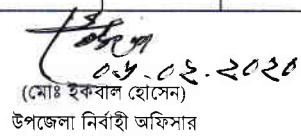 ০৯.০২.২০২০
(মোঃ ইকবাল হোসেন)
উপজেলা নির্বাহী অফিসার